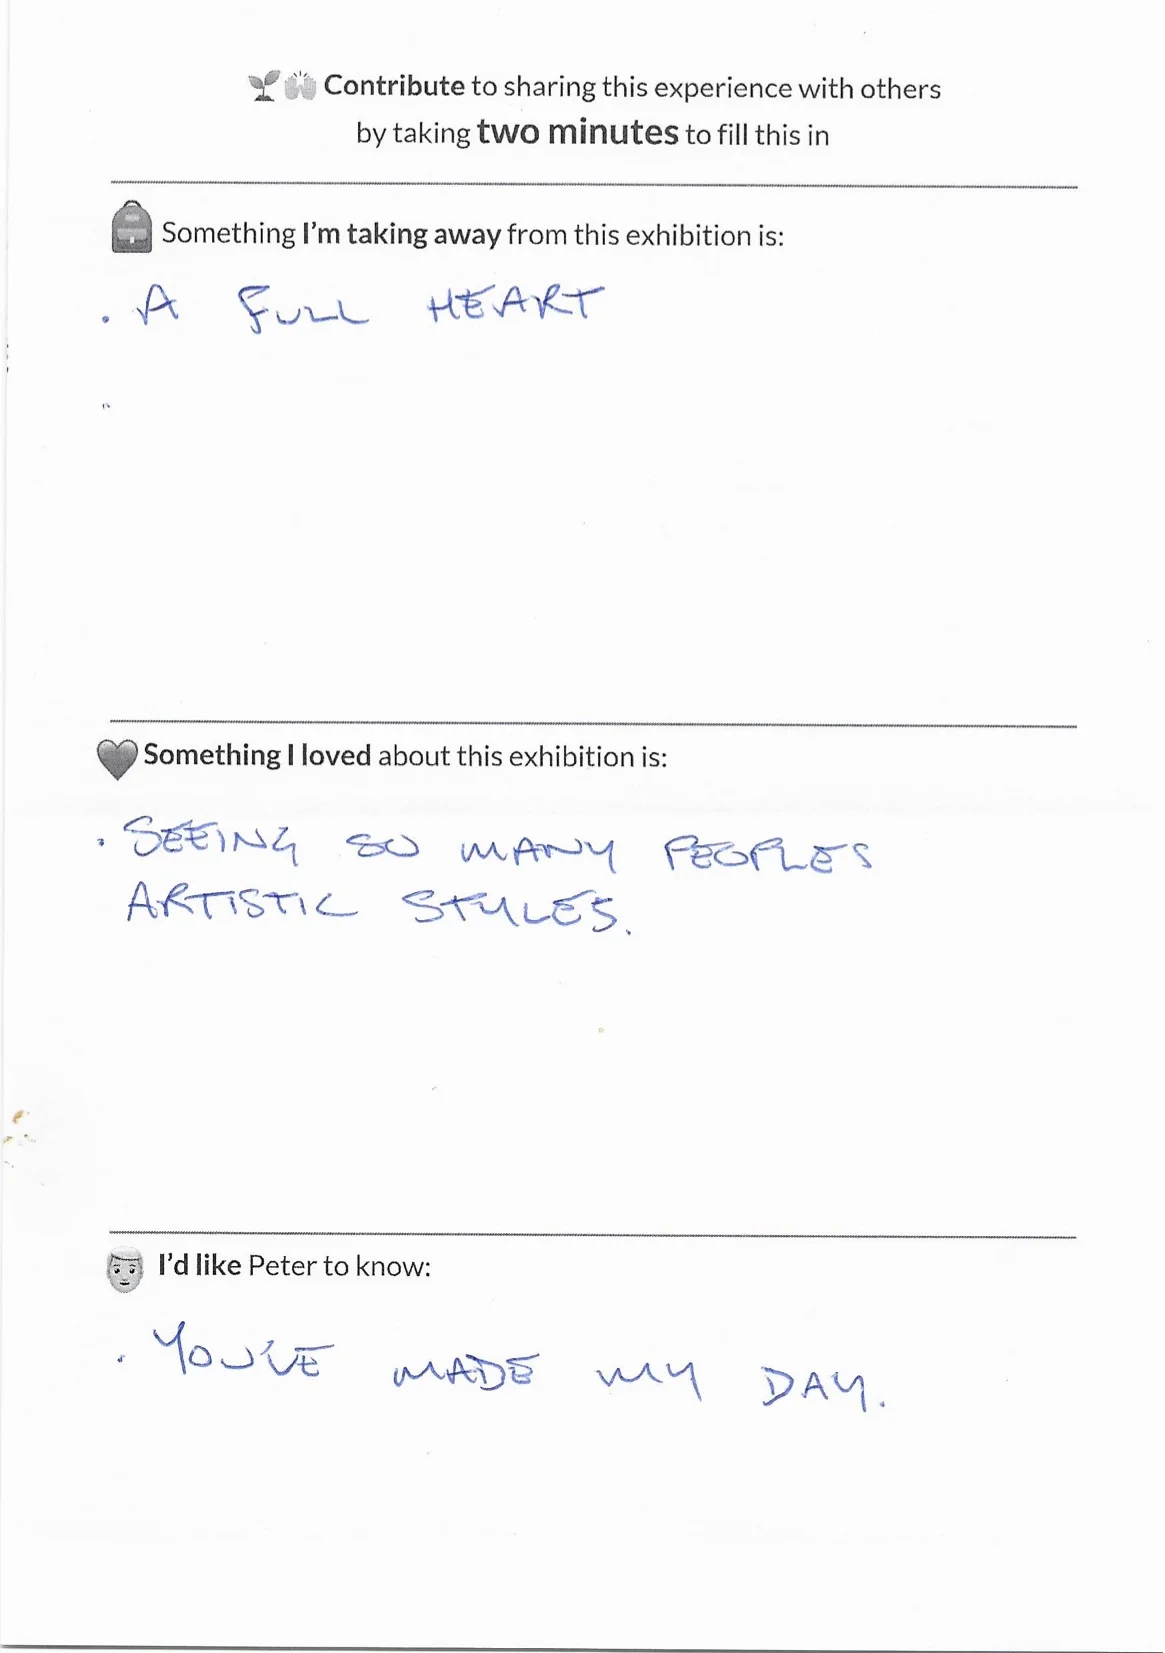 Contribute to sharing this experience with others
by taking two minutes to fill this in
Something I'm taking away from this exhibition is:
. A FULL HEART
Something I loved about this exhibition is:
. SEEING SO MANY PEOPLES
ARTISTIC STYLES.
I'd like Peter to know:
. YOU'VE MADE MY DAY.